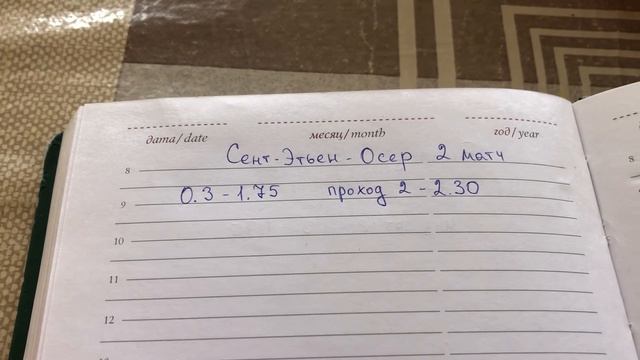 дата/date месяц/month год/year
8 Сент-Этьен - Осер 2 матч 8
9 0.3 - 1.75 проход 2 - 2.30 9
10
11
12